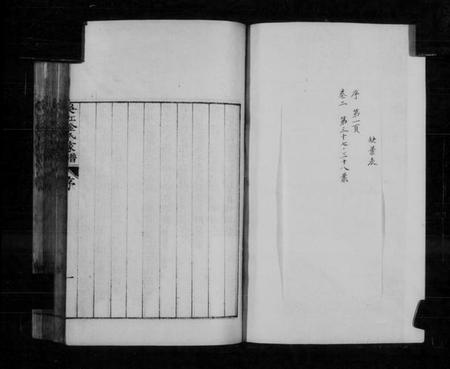 缺葉表
序 第一頁
卷二 第三十七·三十八葉
吳江金氏家譜
序
一